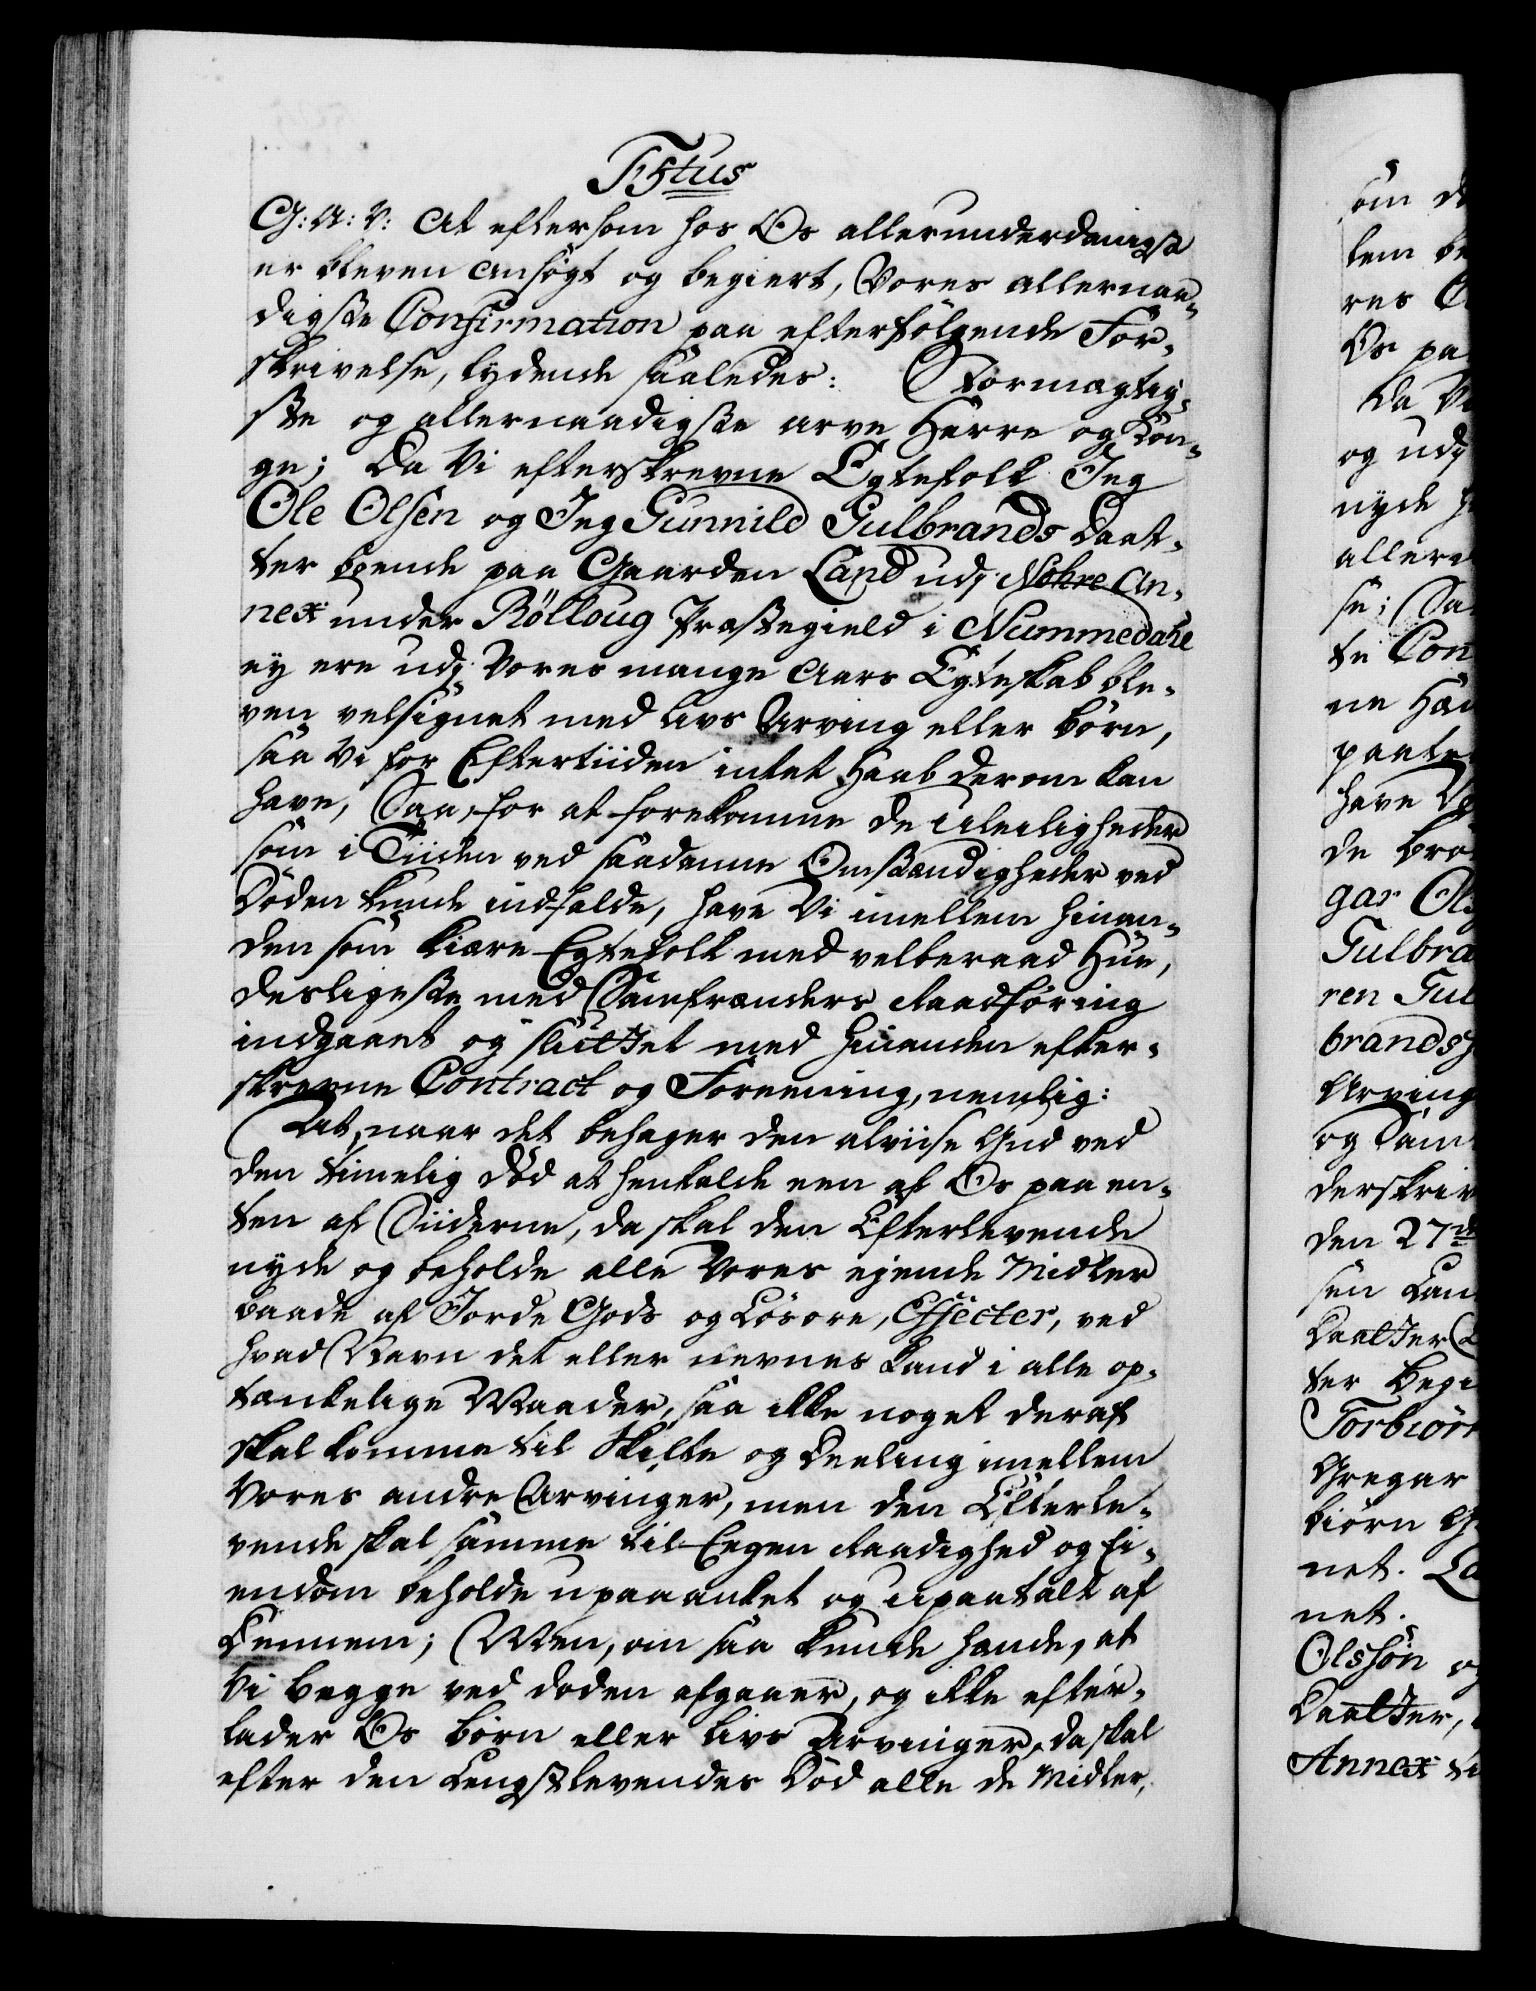 F5tus
G: A: V: At eftersom hos Os allerunderdanigst
er bleven ansøgt og begiert, Vores allernaa-
digste Confirmation paa efterfølgende For-
skrivelse, lydende saaledes: Stormægtig-
ste og allernaadigste arve Herre og Kon-
ge; Da Vi efterskrevne Egtefolk Jeg
Ole Olsen og Jeg Gunnild Gulbrands Daat-
ter boende paa Gaarden Land udj Nohre An-
nex under Rölloug Præstegield i Nummedahl
ey ere udj Vores mange Aars Egteskab ble-
ven velsignet med livs Arving eller børn,
saa Vi for Eftertiiden intet Haab derom kan
have, Saa, for at forekomme de uleiligheder
som i Tiiden ved saadanne Omstændigheder ved
Døden kunde indfalde, have Vi imellem hinan-
den som kiære Egtefolk med velberaad Hue,
desligeste med Samfrænders Raadføring
indgaaet og sluttet med hinanden efter-
skrevne Contract og Foreening, nemlig:
At, naar det behager den alviise Gud ved
den timelig Død at henkalde een af Os paa en-
ten af Siiderne, da skal den Efterlevende
nyde og beholde alle Vores ejende Midler
baade af Jorde Gods og Løsøre, Effecter, ved
hvad Navn det eller nevnes kand i alle op-
tænkelige Maader, saa ikke noget deraf
skal komme til Skifte og Deeling imellem
Vores andre Arvinger, men den Efterle-
vende skal samme til Eegen Raadighed og Ei-
endom beholde upaaanket og upaatalt af
Dennem; Men, om saa kunde hænde, at
Vi begge ved døden afgaaer, og ikke efter-
lader Os børn eller livs Arvinger, da skal
efter den Lengstlevendes Død alle de Midler,
som
lem
res
Os pa
da Vi
og udj
nyde
aller
se; Saa
te Con
ne
paate
have
de
gar Ols
Gulbra
ren Gul
brands
Arving
og Sam
derskriv
den 27de
sen Lan
Daatter
ter Begi
Torbiørn
Gregar
biørn
net. La
net.
Olssøn
Daatter,
Annex